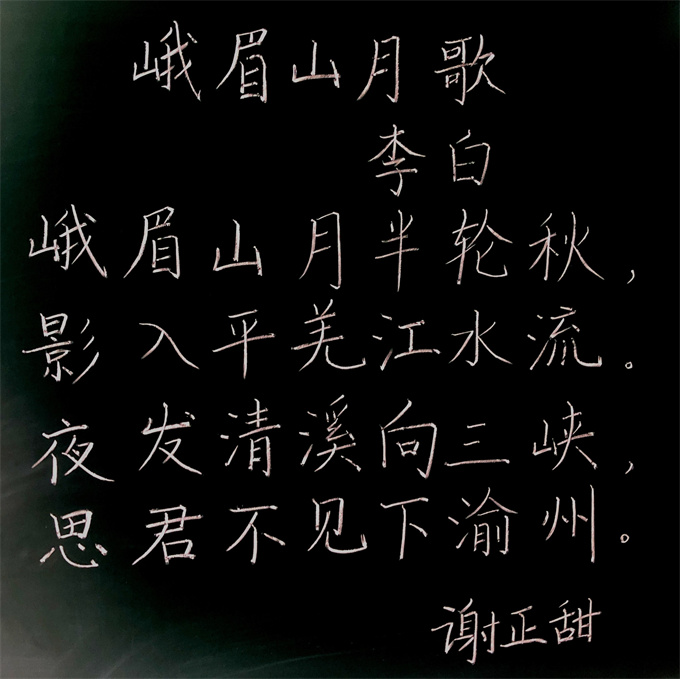 峨眉山月歌
李白
峨眉山月半轮秋，
影入平羌江水流。
夜发清溪向三峡，
思君不见下渝州。
谢正甜